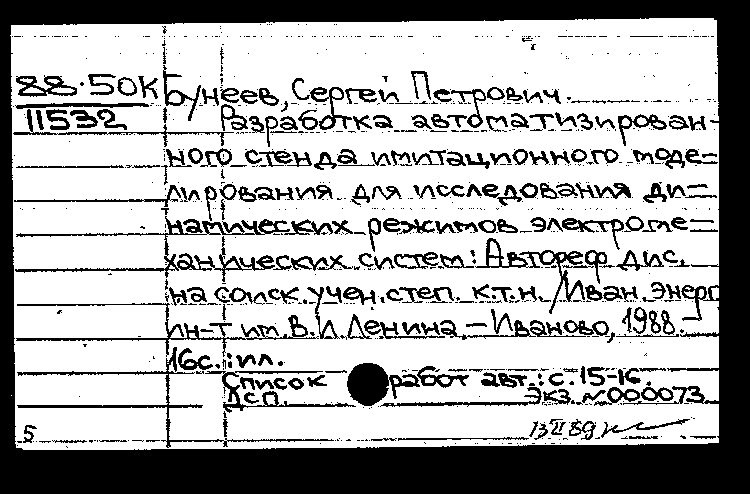 88-50К Бунеев, Сергей Петрович.
11532 Разработка автоматизирован-
ного стенда имитационного моде-
лирования для исследования ди-
намических режимов электроме-
ханических систем: Автореф дис.
на соиск. учен. степ. к.т.н. /Иван. энерг
ин-т им. В. И. Ленина. - Иваново, 1988. -
16с. : ил.
Список работ авт.: с. 15-16.
Дсп. Экз. №000073
5 13 II 89